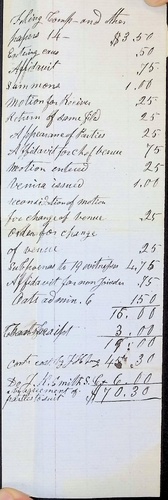 Filing Comp and other
papers 14 — $3.50
Entering cause .50
Affidavit .75
Summons 1.00
Motion for .25
Return of same fild .25
Appearance of Parties .25
Affidavit for ch of venue .75
motion entered .25
Venire issued 1.00
reconsideration of motion
for change of venue .25
order for change
of venue .25
Subpoenas to 19 witnesses 4.75
Affidavit for non joinder .75
Oath admin. 6 1.50
16.00
3.00
19.00
45.30
6.00
by agreement of
parties to suit $70.30